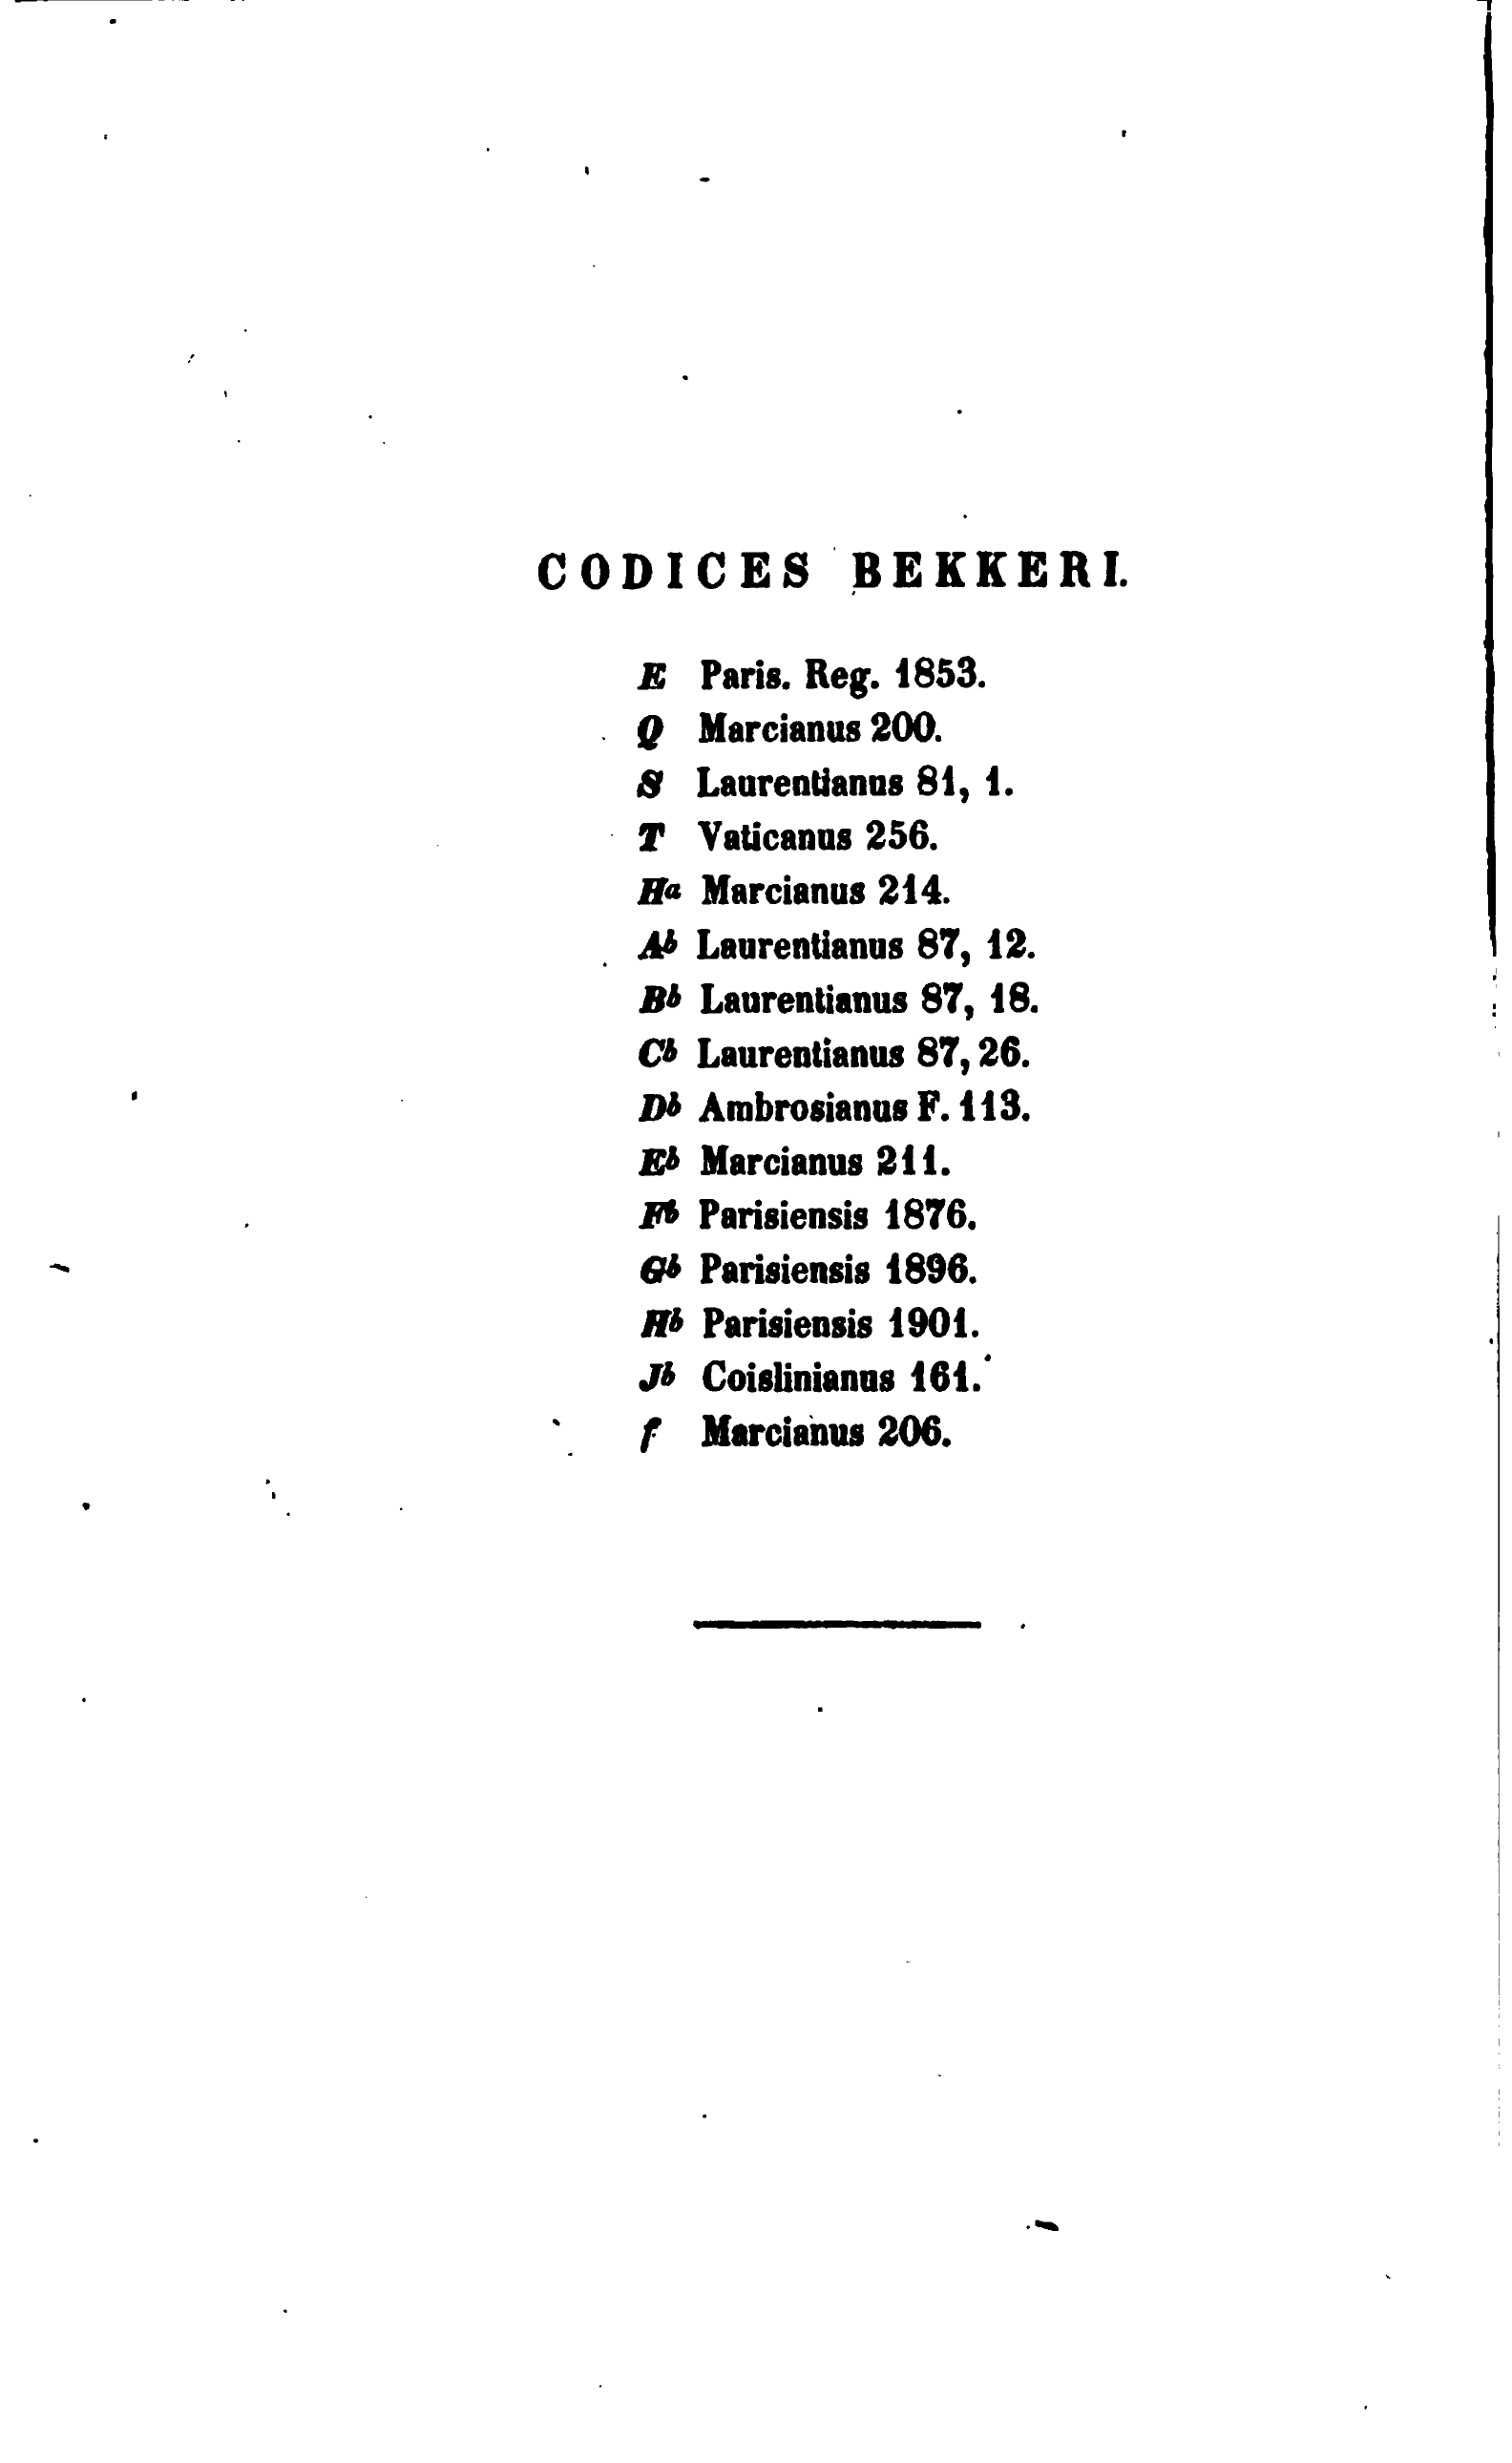 CODICES BEKKERI.
E Paris. Reg. 1853.
Q Marcianus 200.
S Laurentianus 81, 1.
T Vaticanus 256.
Ha Marcianus 214.
Ab Laurentianus 87, 12.
Bb Laurentianus 87, 18.
Cb Laurentianus 87, 26.
Db Ambrosianus F. 113.
Eb Marcianus 211.
Fb Parisiensis 1876.
Gb Parisiensis 1896.
Hb Parisiensis 1901.
Jb Coislinianus 161.
f Marcianus 206.